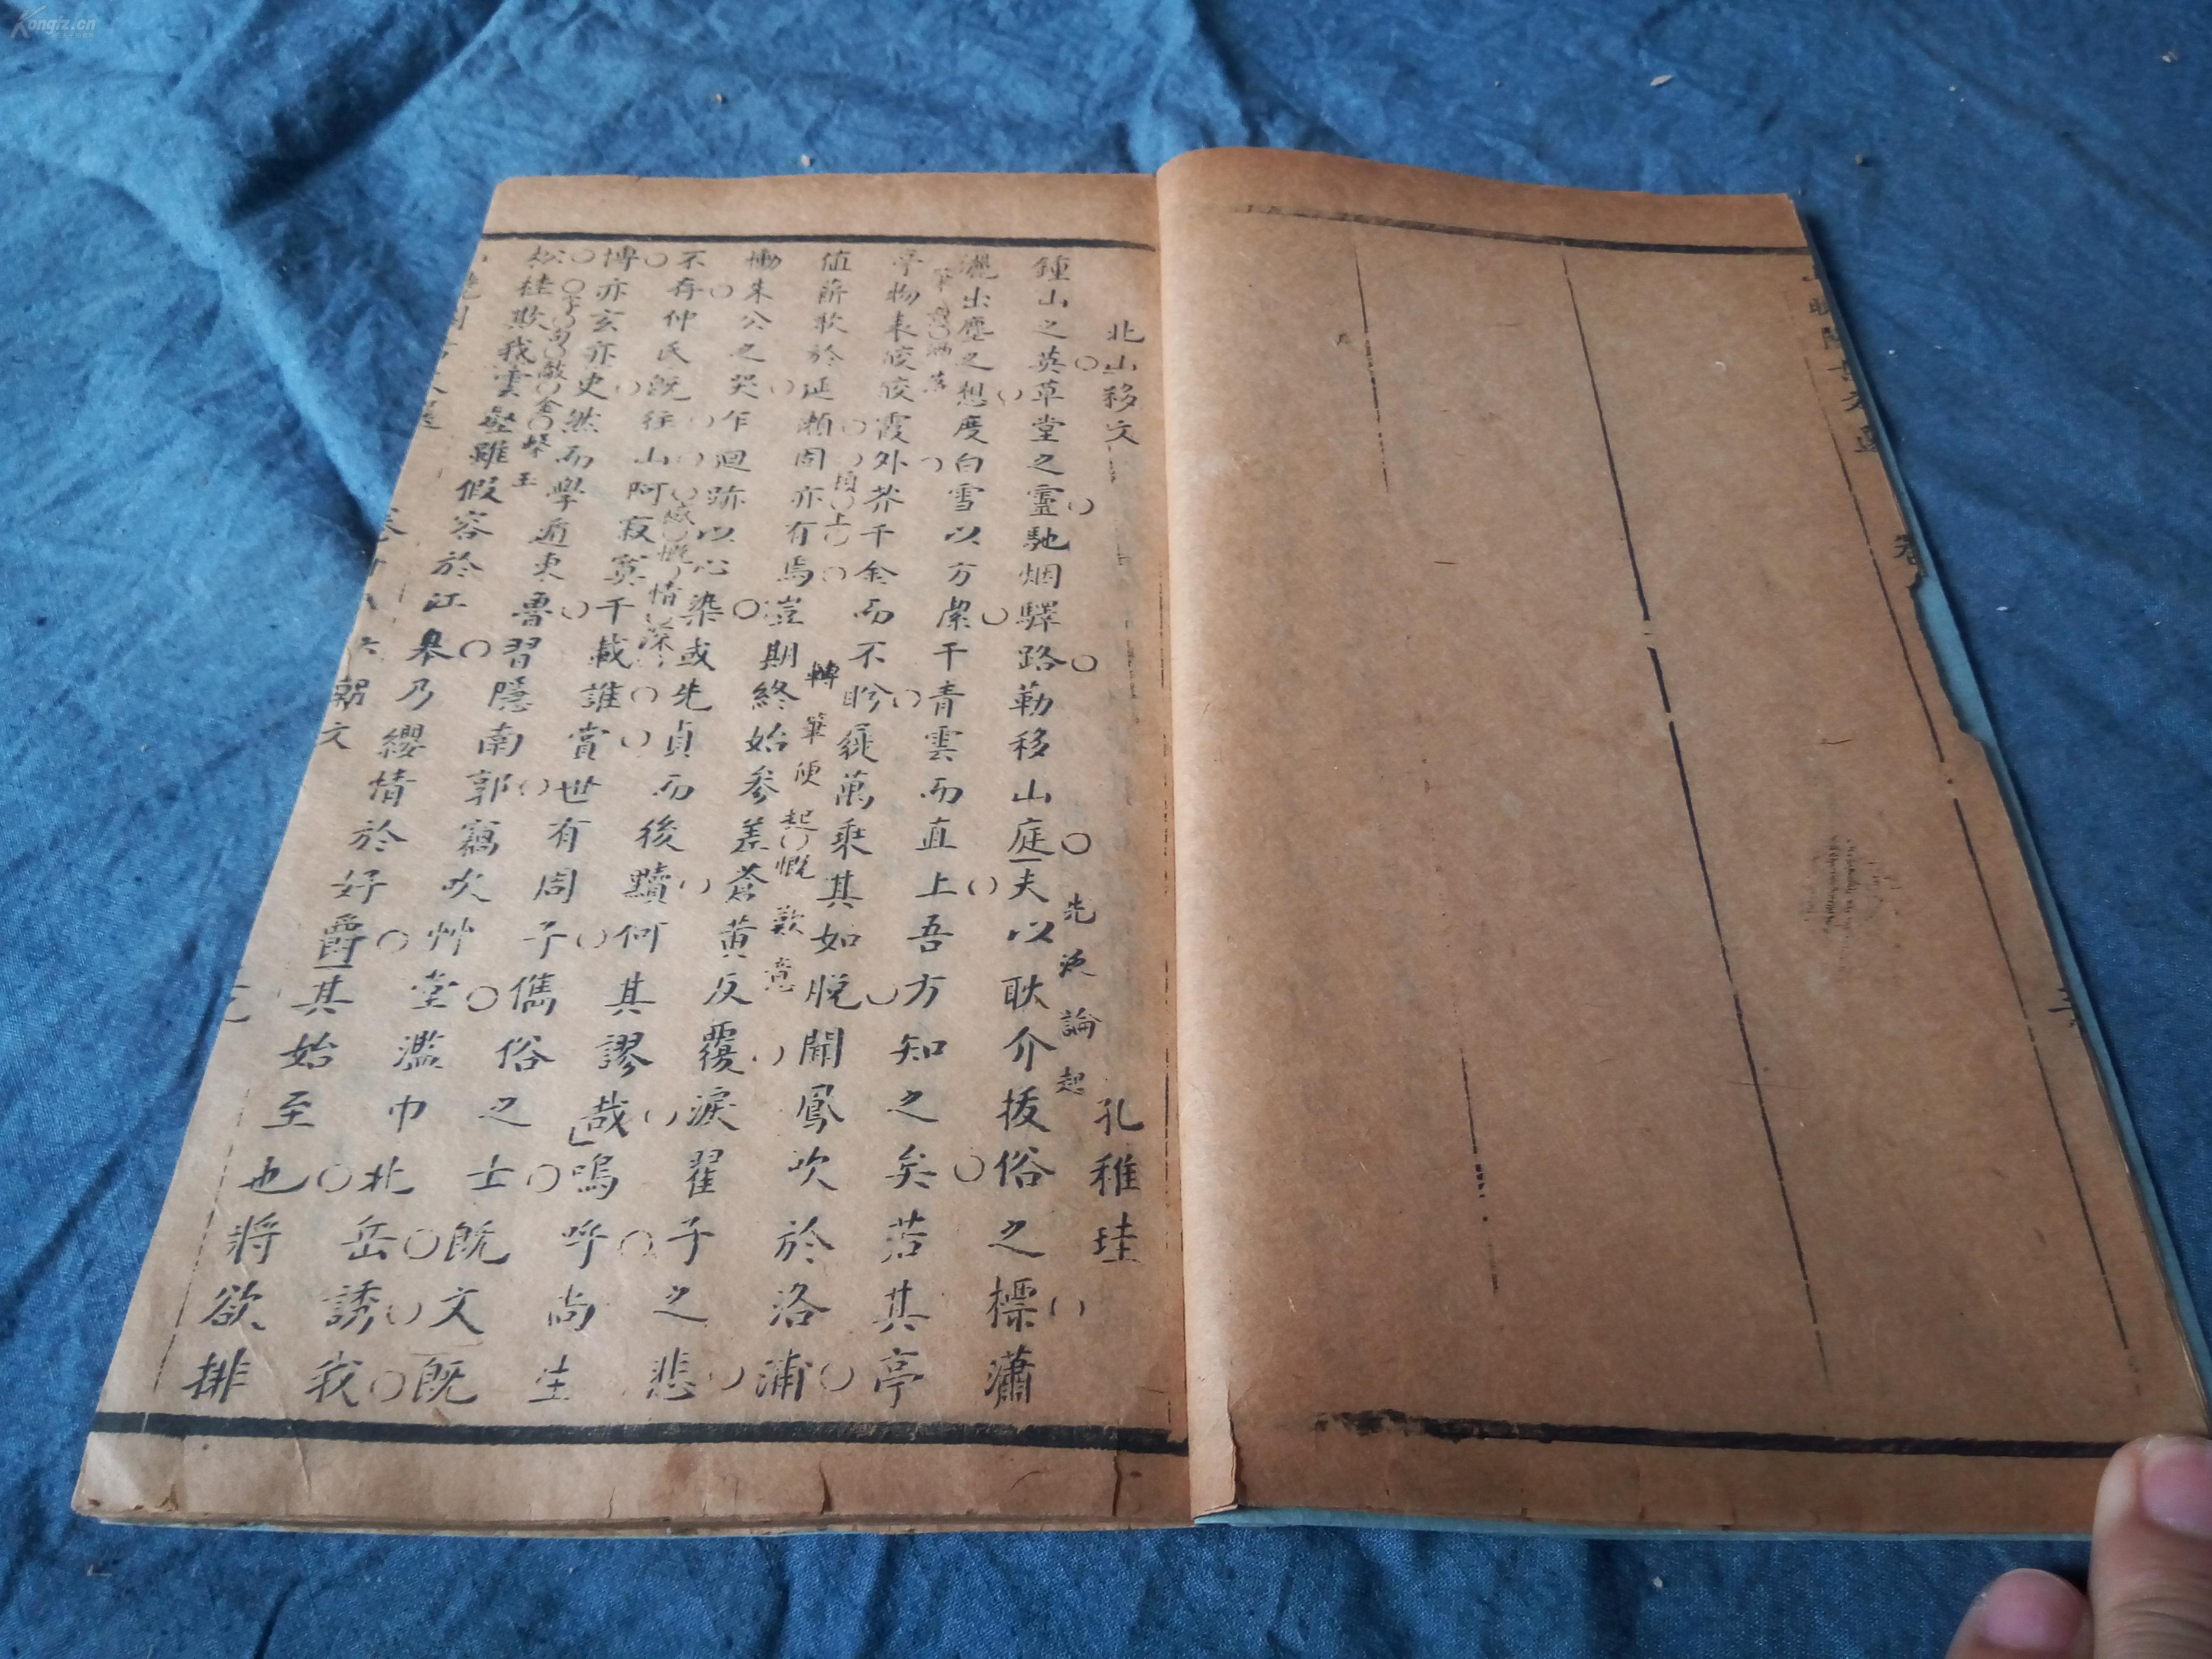 北山移文 孔稚珪
先泛論起
鍾山之英草堂之靈馳烟驛路勒移山庭夫以耿介拔俗之標瀟
灑出塵之想度白雪以方潔干青雲而直上吾方知之矣若其亭
亭物表皎皎霞外芥千金而不盻屣萬乘其如脫聞鳳吹於洛浦
轉筆便起慨歎意
值薪歌於延瀨固亦有焉豈期終始參差蒼黃反覆淚翟子之悲
慟朱公之哭乍迴跡以心染或先貞而後黷何其謬哉嗚呼尚生
感慨情深
不存仲氏既往山阿寂寞千載誰賞世有周子儁俗之士既文既
博亦玄亦史然而學遁東魯習隱南郭竊吹艸堂濫巾北岳誘我
字句敲金琴玉
松桂欺我雲壑雖假容於江皋乃纓情於好爵其始至也將欲排
六朝文
Kongfz.cn